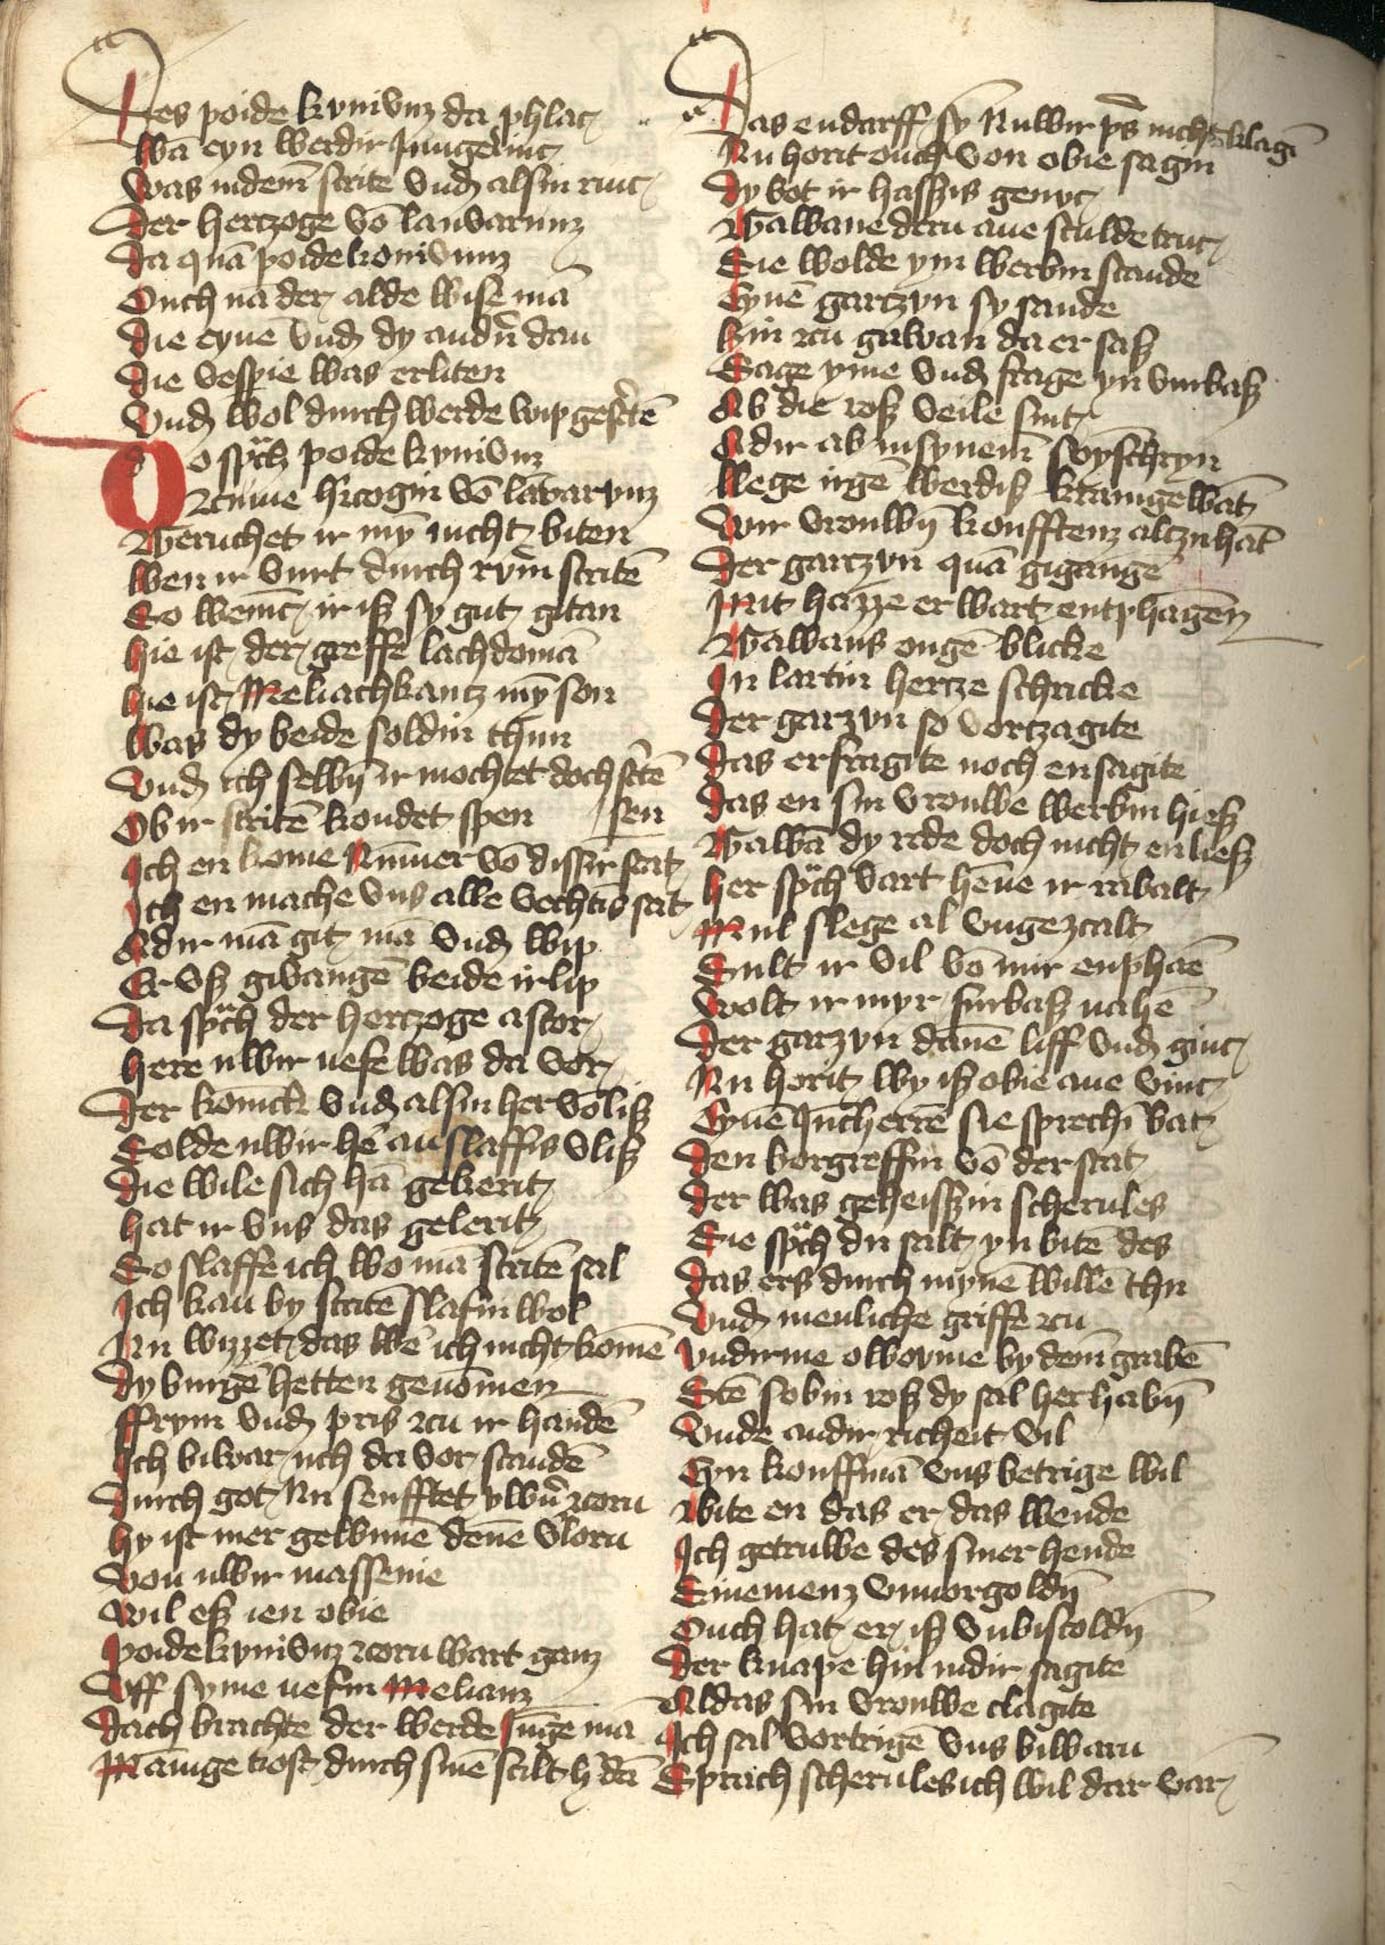 Des poide kynivnz da phlac
Wā eyn werdir Jungelinc
Was indem̄ strite vnd alsin rinc
Der hertzoge vō lanvarunz
Da quā poide konivunz
Ouch na der alde wise mā
Die eyne vnd dy andn̄ dan
Die vesperie was erliten
Vnd wol durch werde wip gestrtē
Do sprach poide kynivnz
zcume hrczogin vō lāvarunz
Geruchet ir myn nicht biten
Wen ir vurt durch rvm̄ stritē
So wenit ir iß sy gut gitan
Hie ist der greffe lachdomā
Hie ist Meliachkantz myn son
Was dy beide soldin thun
Vnd ich selbin ir mochtet doch strtē
Ob ir stritē kondet spen sen
Ich en kome Nim̄er vō dissir stat
Ich en mache vns alle vechtis sat
Adir mā git mā vnd wip
Er vß givangē beide ir lip
Da sprach der hertzoge astor
Here uwir nefe was da vor
Der konnick vnd alsin her vō liß
Solde uwir he an slaffis vliß
Die wile sich hā gekerit
Hat ir vns das gelerit
So slaffe ich wo mā stritē sal
Ich kan by stritē slafin wol
Nu wizzet das wē ich nicht komē
Dy burgē hetten genomen
ffrym vnd pris zcu ir handē
Ich bivar uch da vor standē
Durch got Nu senfftet ywern zcorn
Hy ist mer gewunnē denne vlorn
Von uwir massenie
Wil eß ien obie
Poide kynivnz zcorn wart ganz
Vff syme nefin Melianz
Dach brachte der werde Junge mā
Manige tiost durch sinē scilt h dā
Das endarff sy Nuwir pris nicht klagē
Nu horit ouch von obie sagin
Dy bot ir hasßis genuc
Gawane deru ane sculde truc
Sie wolde ym werbin scande
Eynē gartzyn sy sande
Hin zcu gawan da er saß
Sage yme vnd frage yn vurbaß
Ab die roß veile sint
Adir ab in synem̄ soyschryn
Llege irgē werdiß kramgewāt
Wir vrouwin koufftenz altzuhāt
Der gartzyn quā gigangē
Mit hazze er wart entphagen
Gawans ougē blicke
In lartin hertze schricke
Der garzyn so vortzagite
Das er fragite noch en sagite
Das en sin vrouwe werbin hieß
Gawā dy rede doch nicht en ließ
Her sprach vart henne ir ribalt
Mul slege al vngezcalt
Sult ir vil vō mir enphaē
Wolt ir myr furbaß nahē
Der garzyn dannē liff vnd ginc
Nu horit wy iß obie ane vinc
Eynē Juncherrē sie sprechi bat
Den borgreffin vō der stat
Der was geheisßin scherules
Sie sprach du salt yn bitē des
Das ers durch mynē willē thu
Vnd menliche griffe zcu
Vndirme olboyme by dem grabē
Stē sobin roß dy sal her habin
Vnde andir richeit vil
Eyn kouffmā vns betrige wil
Bite en das er das wende
Ich getruwe des siner hende
Sinemenz vnuorgoldin
Ouch hat er iß vnbiscoldin
Der knape hin nidir sagite
Aldas sin vrouwe clagite
Ich sal vortrigē vns biwarn
Sprach scherules ich wil dar var